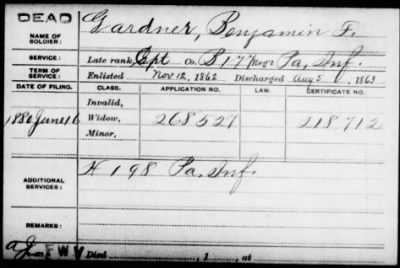 DEAD
NAME OF SOLDIER: Gardner, Benjamin F.
SERVICE: Late rank, Cpt Co. B 177 Reg't Pa, Inf.
TERM OF SERVICE: Enlisted Nov 12, 1862 Discharged Aug 5, 1863
DATE OF FILING. CLASS. APPLICATION NO. LAW. CERTIFICATE NO.
Invalid,
1880 June 16 Widow, 268527 218712
Minor,
ADDITIONAL SERVICES: H 198 Pa, Inf.
REMARKS:
F W V Died , 1 , at